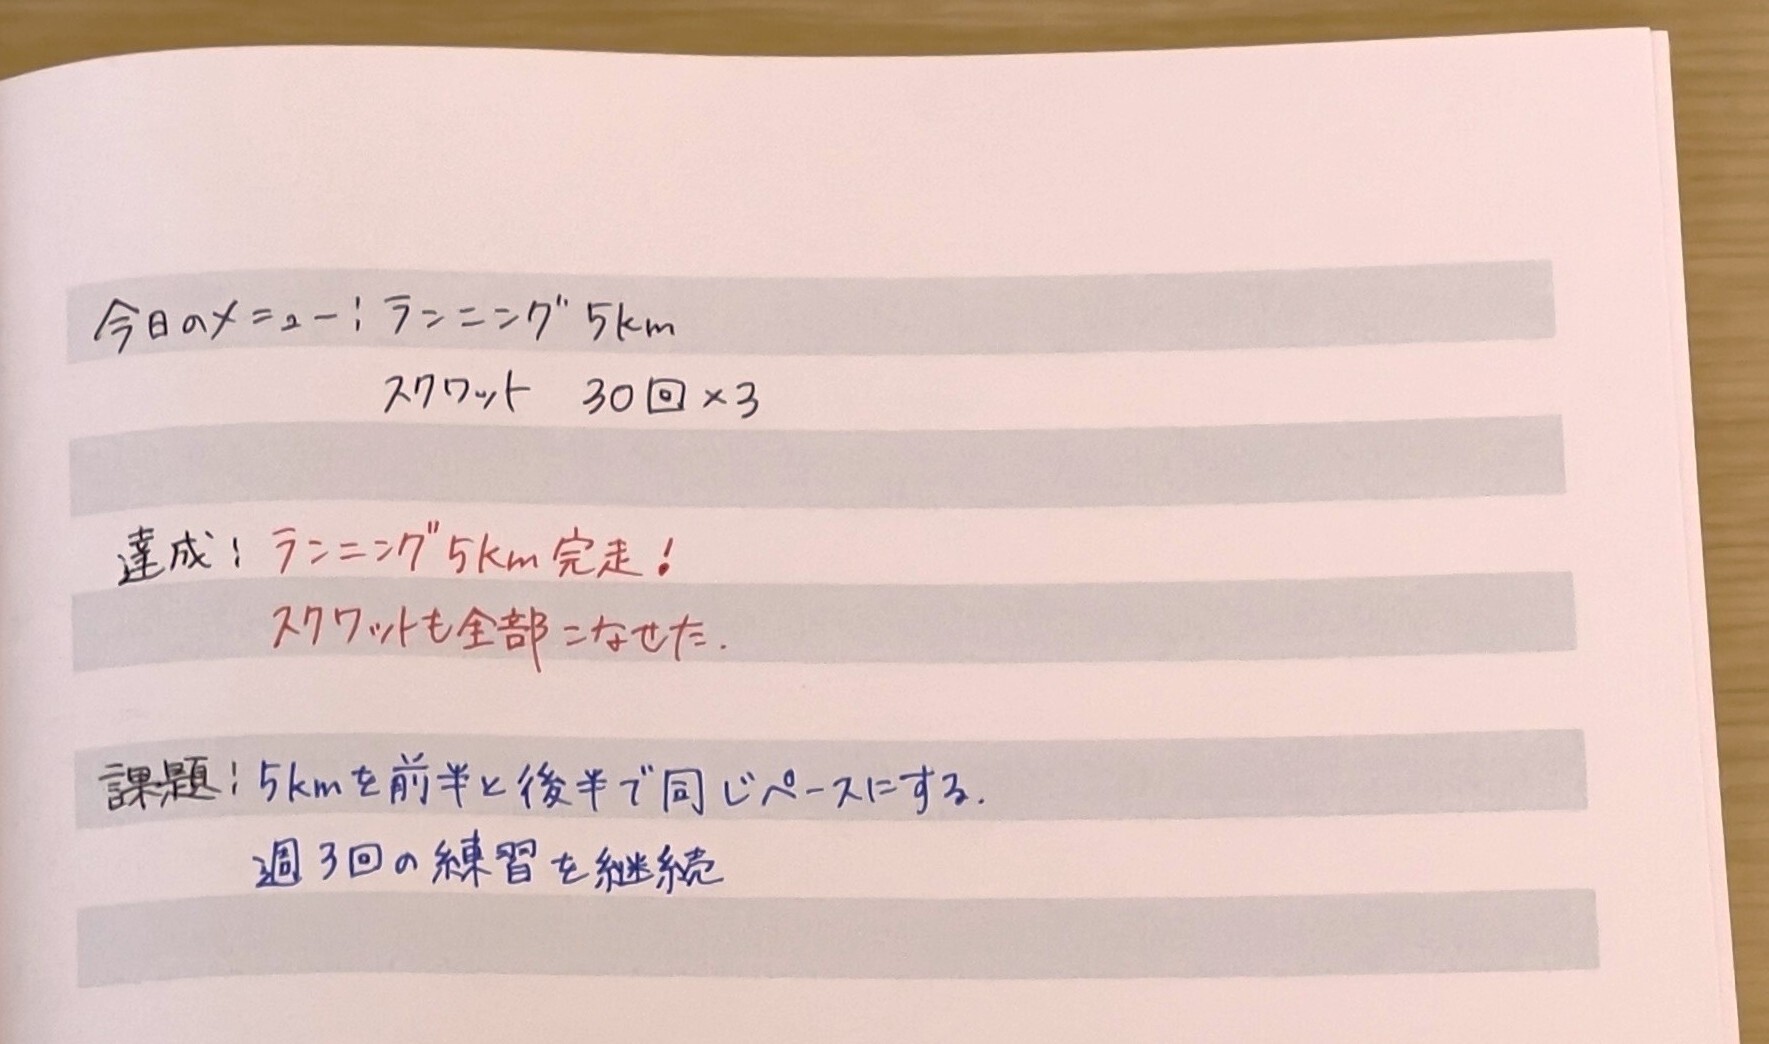 今日のメニュー：ランニング 5km
スクワット 30回×3
達成：ランニング5km完走！
スクワットも全部こなせた.
課題：5kmを前半と後半で同じペースにする.
週3回の練習を継続